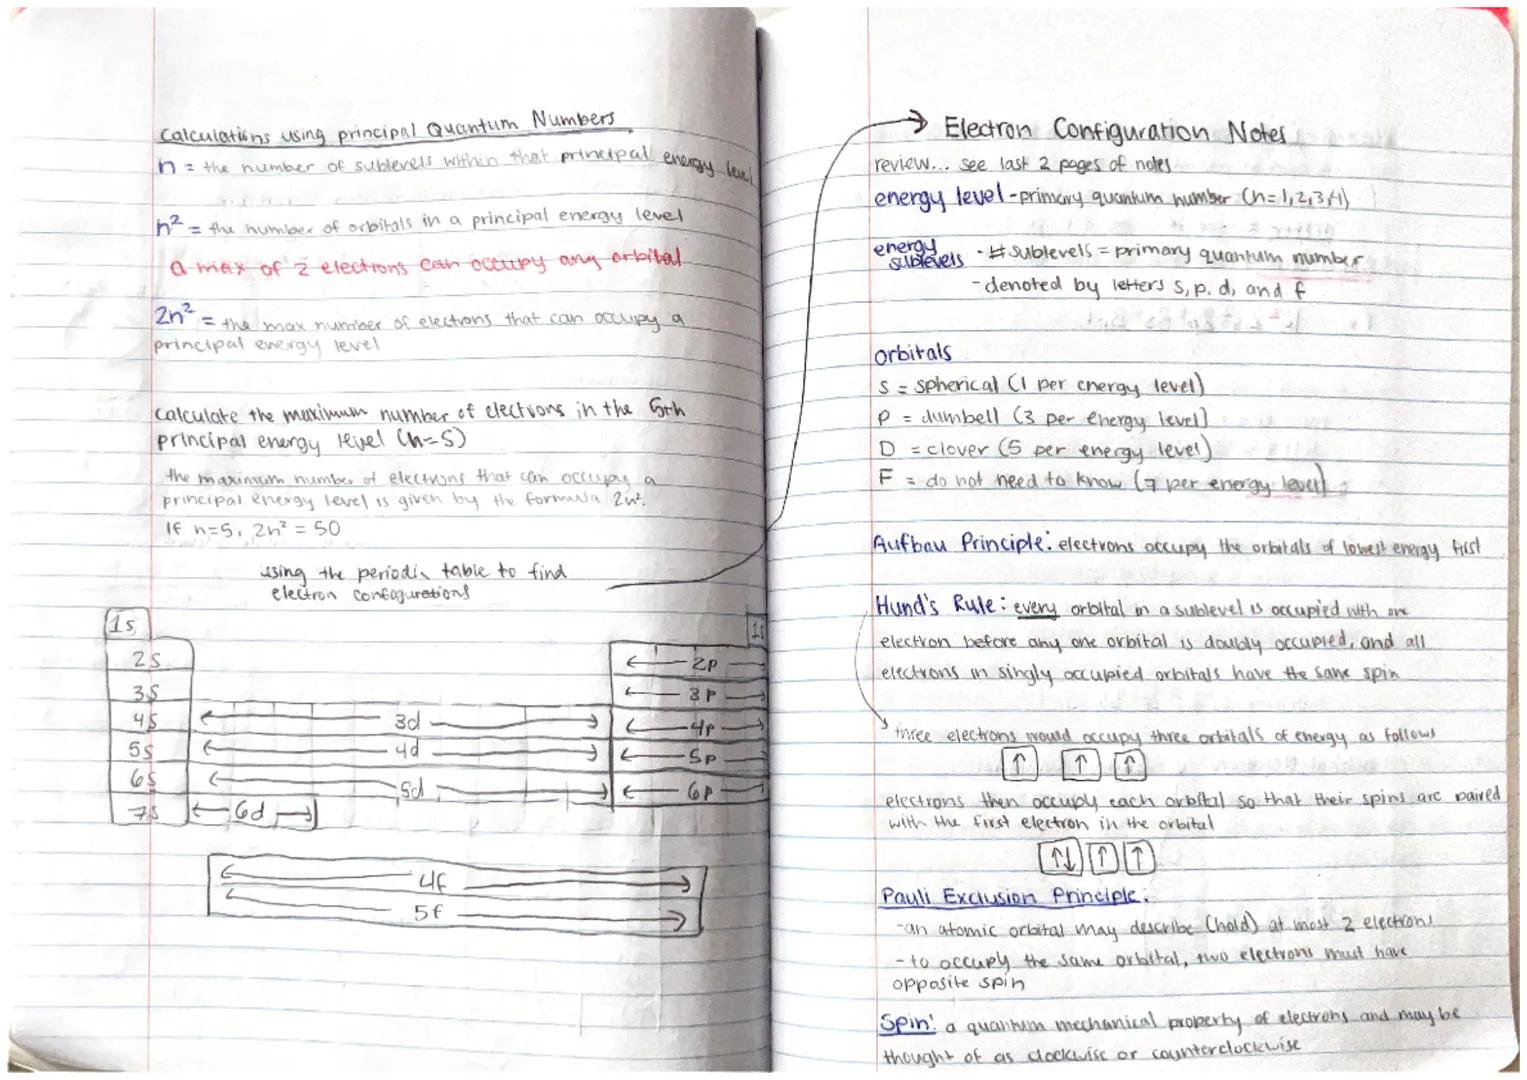 Calculations using principal Quantum Numbers
n = the number of sublevels within that principal energy level
n² = the number of orbitals in a principal energy level
a max of 2 electrons can occupy any orbital
2n² = the max number of electrons that can occupy a
principal energy level
calculate the maximum number of electrons in the 5th
principal energy level (n=5)
the maximum number of electrons that can occupy a
principal energy level is given by the formula 2n².
If n=5, 2n² = 50
using the periodic table to find
electron configurations
1s
1s
2s
2p
3s
3p
4s
3d
4p
5s
4d
5p
6s
5d
6p
7s
6d
4f
5f
→ Electron Configuration Notes
review... see last 2 pages of notes
energy level - primary quantum number (n=1,2,3,4)
energy
sublevels - # sublevels = primary quantum number
- denoted by letters s, p, d, and f
orbitals
S = spherical (1 per energy level)
P = dumbell (3 per energy level)
D = clover (5 per energy level)
F = do not need to know (7 per energy level)
Aufbau Principle: electrons occupy the orbitals of lowest energy first
Hund's Rule: every orbital in a sublevel is occupied with one
electron before any one orbital is doubly occupied, and all
electrons in singly occupied orbitals have the same spin
three electrons would occupy three orbitals of energy as follows
↑ ↑ ↑
electrons then occupy each orbital so that their spins are paired
with the first electron in the orbital
↑↓ ↑ ↑
Pauli Exclusion Principle:
- an atomic orbital may describe (hold) at most 2 electrons
- to occupy the same orbital, two electrons must have
opposite spin
Spin: a quantum mechanical property of electrons and may be
thought of as clockwise or counterclockwise